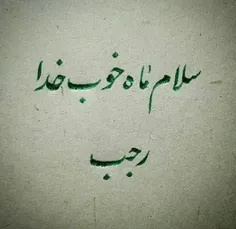 سلام ماه خوب خدا
رجب